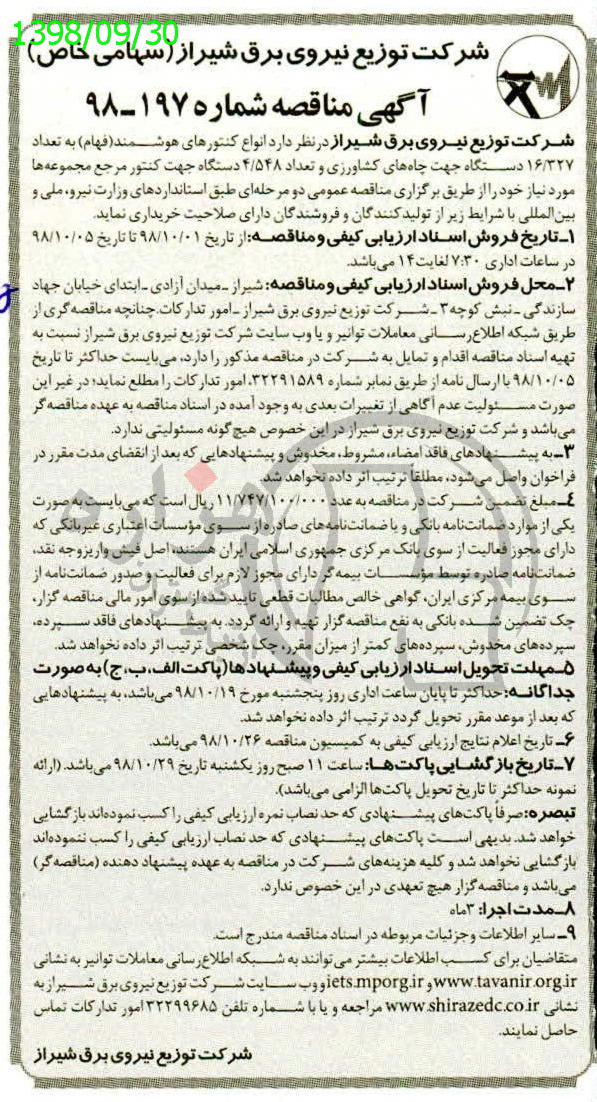 1398/09/30
شرکت توزیع نیروی برق شیراز (سهامی خاص)
آگهی مناقصه شماره ۱۹۷-۹۸
شرکت توزیع نیروی برق شیراز درنظر دارد انواع کنتورهای هوشمند(فهام) به تعداد
۱۶/۳۲۷ دستگاه جهت چاه‌های کشاورزی و تعداد ۴/۵۴۸ دستگاه جهت کنتور مرجع مجموعه‌ها
مورد نیاز خود را از طریق برگزاری مناقصه عمومی دو مرحله‌ای طبق استانداردهای وزارت نیرو، ملی و
بین‌المللی با شرایط زیر از تولیدکنندگان و فروشندگان دارای صلاحیت خریداری نماید.
۱-تاریخ فروش اسناد ارزیابی کیفی و مناقصه: از تاریخ ۹۸/۱۰/۰۱ تا تاریخ ۹۸/۱۰/۰۵
در ساعات اداری ۷:۳۰ لغایت ۱۴ می‌باشد.
۲-محل فروش اسناد ارزیابی کیفی و مناقصه: شیراز - میدان آزادی - ابتدای خیابان جهاد
سازندگی - نبش کوچه ۳ - شرکت توزیع نیروی برق شیراز - امور تدارکات.چنانچه مناقصه‌گری از
طریق شبکه اطلاع‌رسانی معاملات توانیر و یا وب سایت شرکت توزیع نیروی برق شیراز نسبت به
تهیه اسناد مناقصه اقدام و تمایل به شرکت در مناقصه مذکور را دارد، می‌بایست حداکثر تا تاریخ
۹۸/۱۰/۰۵ با ارسال نامه از طریق نمابر شماره ۳۲۲۹۱۵۸۹، امور تدارکات را مطلع نماید؛ در غیر این
صورت مسئولیت عدم آگاهی از تغییرات بعدی به وجود آمده در اسناد مناقصه به عهده مناقصه‌گر
می‌باشد و شرکت توزیع نیروی برق شیراز در این خصوص هیچ‌گونه مسئولیتی ندارد.
۳-به پیشنهادهای فاقد امضاء، مشروط، مخدوش و پیشنهادهایی که بعد از انقضای مدت مقرر در
فراخوان واصل می‌شود، مطلقا ترتیب اثر داده نخواهد شد.
۴-مبلغ تضمین شرکت در مناقصه به عدد ۱۱/۷۴۷/۱۰۰/۰۰۰ ریال است که می‌بایست به صورت
یکی از موارد ضمانت‌نامه بانکی و یا ضمانت‌نامه‌های صادره از سوی مؤسسات اعتباری غیربانکی که
دارای مجوز فعالیت از سوی بانک مرکزی جمهوری اسلامی ایران هستند، اصل فیش واریز وجه نقد،
ضمانت‌نامه صادره توسط مؤسسات بیمه‌گر دارای مجوز لازم برای فعالیت و صدور ضمانت‌نامه از
سوی بیمه مرکزی ایران، گواهی خالص مطالبات قطعی تایید شده از سوی امور مالی مناقصه گزار،
چک تضمین شده بانکی به نفع مناقصه گزار تهیه و ارائه گردد. به پیشنهادهای فاقد سپرده،
سپرده‌های مخدوش، سپرده‌های کمتر از میزان مقرر، چک شخصی ترتیب اثر داده نخواهد شد.
۵-مهلت تحویل اسناد ارزیابی کیفی و پیشنهادها (پاکت الف، ب، ج) به صورت
جداگانه: حداکثر تا پایان ساعت اداری روز پنجشنبه مورخ ۹۸/۱۰/۱۹ می‌باشد، به پیشنهادهایی
که بعد از موعد مقرر تحویل گردد ترتیب اثر داده نخواهد شد.
۶- تاریخ اعلام نتایج ارزیابی کیفی به کمیسیون مناقصه ۹۸/۱۰/۲۶ می‌باشد.
۷-تاریخ بازگشایی پاکت‌ها: ساعت ۱۱ صبح روز یکشنبه تاریخ ۹۸/۱۰/۲۹ می‌باشد. (ارائه
نمونه حداکثر تا تاریخ تحویل پاکت‌ها الزامی می‌باشد).
تبصره: صرفاً پاکت‌های پیشنهادی که حد نصاب نمره ارزیابی کیفی را کسب نموده‌اند بازگشایی
خواهد شد. بدیهی است پاکت‌های پیشنهادی که حد نصاب ارزیابی کیفی را کسب ننموده‌اند
بازگشایی نخواهد شد و کلیه هزینه‌های شرکت در مناقصه به عهده پیشنهاد دهنده (مناقصه‌گر)
می‌باشد و مناقصه‌گزار هیچ تعهدی در این خصوص ندارد.
۸-مدت اجرا: ۳ماه
۹- سایر اطلاعات و جزئیات مربوطه در اسناد مناقصه مندرج است.
متقاضیان برای کسب اطلاعات بیشتر می‌توانند به شبکه اطلاع‌رسانی معاملات توانیر به نشانی
www.tavanir.org.ir و iets.mporg.ir و وب سایت شرکت توزیع نیروی برق شیراز به
نشانی www.shirazedc.co.ir مراجعه و یا با شماره تلفن ۳۲۲۹۹۶۸۵ امور تدارکات تماس
حاصل نمایند.
شرکت توزیع نیروی برق شیراز